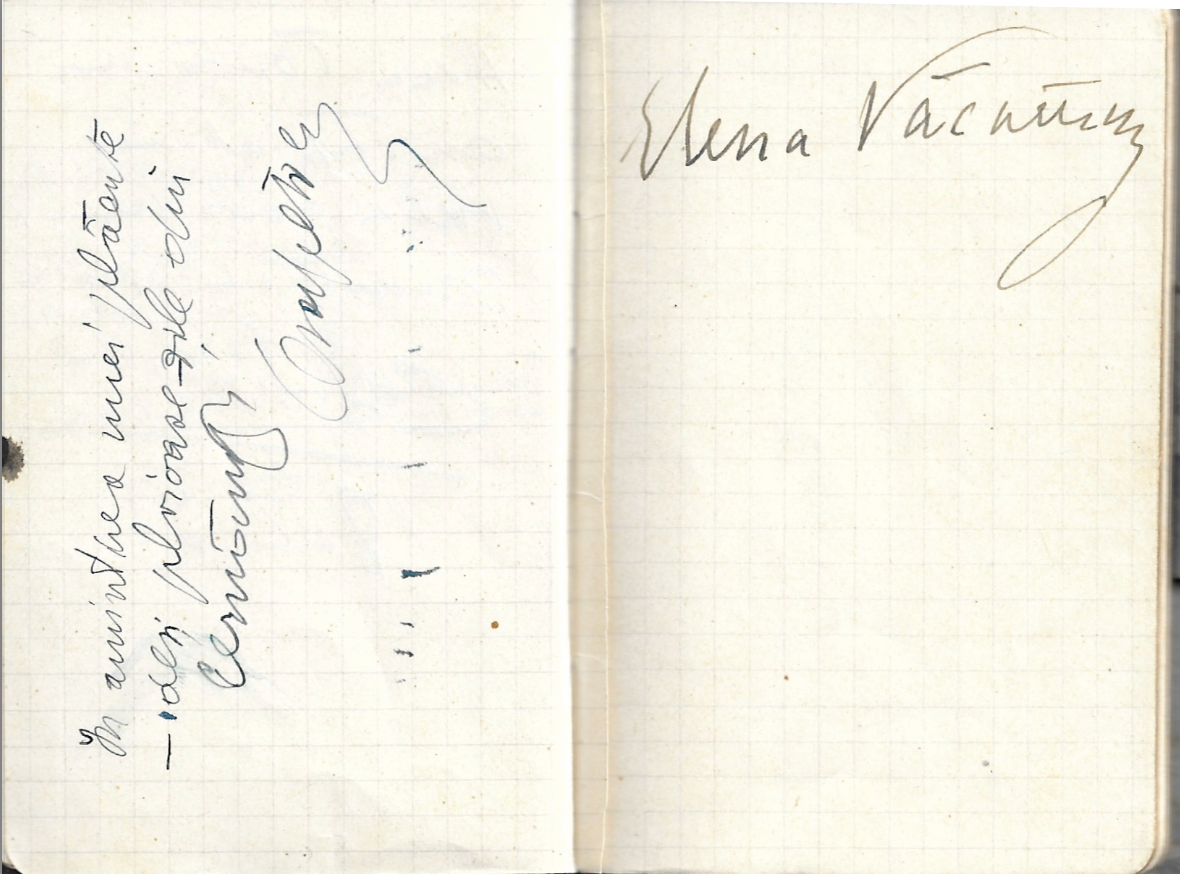 În amintirea unei plăcute
— deși ploioase — zile din
Cernăuți
Elena Văcărescu